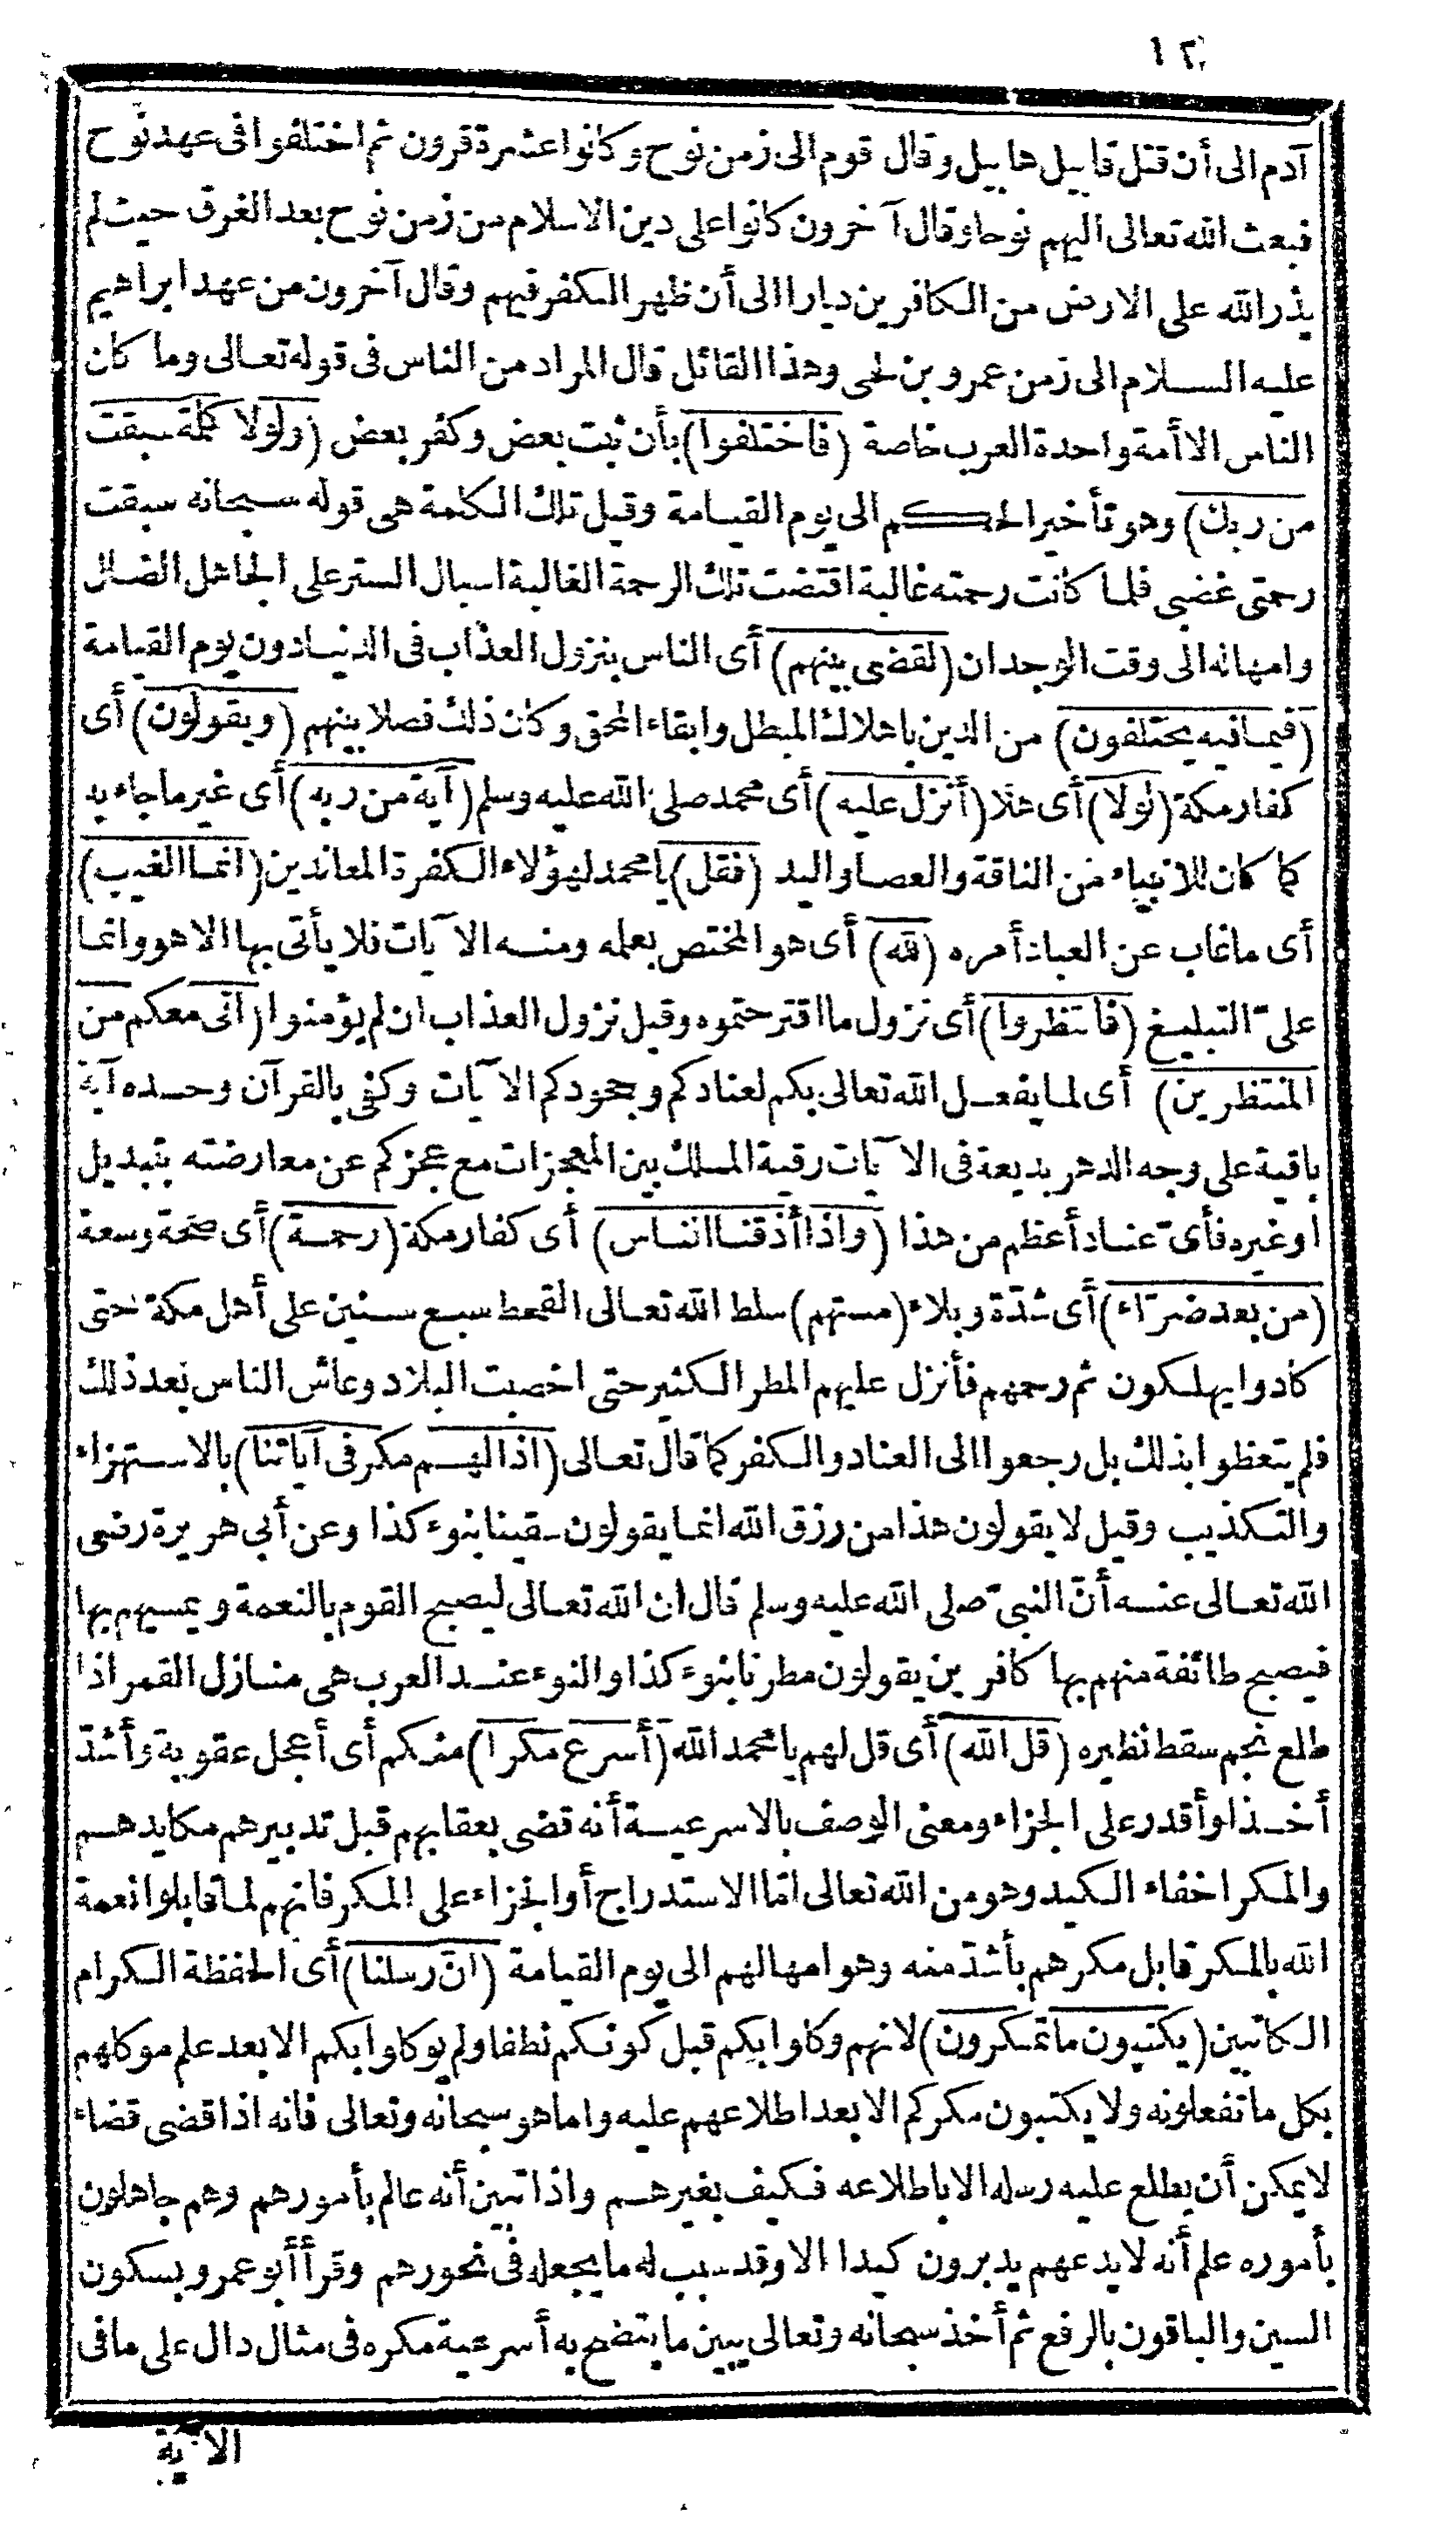 ١٢
آدم الى أن قتل قابيل هابيل وقال قوم الى زمن نوح وكانوا عشرة قرون ثم اختلفوا فى عهد نوح
فبعث الله تعالى اليهم نوحا وقال آخرون كانوا على دين الاسلام من زمن نوح بعد الغرق حيث لم
يذر الله على الارض من الكافرين ديارا الى أن ظهر الكفر فيهم وقال آخرون من عهد ابراهيم
عليه السلام الى زمن عمرو بن لحى وهذا القائل قال المراد من الناس فى قوله تعالى وما كان
الناس الا أمة واحدة العرب خاصة (فاختلفوا) بأن ثبت بعض وكفر بعض (ولولا كلمة سبقت
من ربك) وهو تأخير الحكم الى يوم القيامة وقيل تلك الكلمة هى قوله سبحانه سبقت
رحمتى غضبى فلما كانت رحمته غالبة اقتضت تلك الرحمة الغالبة اسبال الستر على الجاهل الضال
وامهاله الى وقت الوجدان (لقضى بينهم) أى الناس بنزول العذاب فى الدنيا دون يوم القيامة
(فيما فيه يختلفون) من الدين باهلاك المبطل وابقاء المحق وكان ذلك فصلا بينهم (ويقولون) أى
كفار مكة (لولا) أى هلا (أنزل عليه) أى محمد صلى الله عليه وسلم (آية من ربه) أى غير ما جاء به
كما كان للانبياء من الناقة والعصا واليد (فقل) يا محمد لهؤلاء الكفرة المعاندين (انما الغيب)
أى ما غاب عن العباد أمره (لله) أى هو المختص بعلمه ومنه الآيات فلا يأتى بها الا هو وانما
علىّ التبليغ (فانتظروا) أى نزول ما اقترحتموه وقيل نزول العذاب ان لم يؤمنوا (انى معكم من
المنتظرين) أى لما يفعل الله تعالى بكم لعنادكم وجحودكم الآيات وكفى بالقرآن وحده آية
باقية على وجه الدهر بديعة فى الآيات رقية المسلك بين المعجزات مع عجزكم عن معارضته بتبديل
او غيره فأىّ عناد أعظم من هذا (واذا أذقنا الناس) أى كفار مكة (رحمة) أى صحة وسعة
(من بعد ضرّاء) أى شدّة وبلاء (مستهم) سلط الله تعالى القحط سبع سنين على أهل مكة حتى
كادوا يهلكون ثم رحمهم فأنزل عليهم المطر الكثير حتى اخصبت البلاد وعاش الناس بعد ذلك
فلم يتعظوا بذلك بل رجعوا الى العناد والكفر كما قال تعالى (اذا لهم مكر فى آياتنا) بالاستهزاء
والتكذيب وقيل لا يقولون هذا من رزق الله انما يقولون سقينا بنوء كذا وعن أبى هريرة رضى
الله تعالى عنه أنّ النبىّ صلى الله عليه وسلم قال ان الله تعالى ليصبح القوم بالنعمة ويمسيهم بها
فيصبح طائفة منهم بها كافرين يقولون مطرنا بنوء كذا والنوء عند العرب هى منازل القمر اذا
طلع نجم سقط نظيره (قل الله) أى قل لهم يا محمد الله (أسرع مكرا) منكم أى أعجل عقوبة وأشدّ
أخذا وأقدر على الجزاء ومعنى الوصف بالاسرعية أنه قضى بعقابهم قبل تدبيرهم مكايدهم
والمكر اخفاء الكيد وهو من الله تعالى امّا الاستدراج أو الجزاء على المكر فانهم لما قابلوا نعمة
الله بالمكر قابل مكرهم بأشدّ منه وهو امهالهم الى يوم القيامة (انّ رسلنا) أى الحفظة الكرام
الكاتبين (يكتبون ما تمكرون) لانهم وكلوا بكم قبل كونكم نطفا ولم يوكلوا بكم الا بعد علم موكلهم
بكل ما تفعلونه ولا يكتبون مكركم الا بعد اطلاعهم عليه واما هو سبحانه وتعالى فانه اذا قضى قضاء
لا يمكن أن يطلع عليه رسله الا باطلاعه فكيف بغيرهم واذا تبين أنه عالم بأمورهم وهم جاهلون
بأموره علم أنه لا يدعهم يدبرون كيدا الا وقد سبب له ما يجعله فى نحورهم وقرأ أبو عمرو بسكون
السين والباقون بالرفع ثم أخذ سبحانه وتعالى يبين ما يتضح به أسرعية مكره فى مثال دال على ما فى
الآية